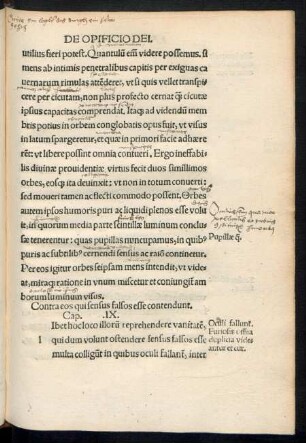 DE OPIFICIO DEI.
utilius fieri potest. Quantulũ em̃ videre possemus. si
mens ab intimis penetralibus capitis per exiguas ca
uernarum rimulas attẽderet, vt si quis vellet transpi
cere per cicutam, non plus profecto cernat q̃ cicutæ
ipsius capacitas comprendat. Itaq; ad videndũ mem
bris potius in orbem conglobatis opus fuit, vt visus
in latum spargeretur, et quæ in primori facie adhære
rent: vt libere possent omnia contueri, Ergo ineffabi
lis diuinæ prouidentiæ virtus fecit duos simillimos
orbes, eosq; ita deuinxit: vt non in totum conuerti:
sed moueri tamen ac flecti commodo possent. Orbes
autem ipsos humoris puri ac liquidi plenos esse volu
it, in quorum media parte scintillæ luminum conclu
sæ tenerentur: quas pupillas nuncupamus, in quib
puris ac subtilib cernendi sensus ac rãõ continetur.
Pupillæ q̃.
Per eos igitur orbes seipsam mens intendit, vt vide
at, miraq; ratione in vnum miscetur et coniungit am
borum luminum visus.
Contra eos qui sensus falsos esse contendunt.
Cap. .IX.
Ibet hoc loco illorũ reprehendere vanitatẽ,
l qui dum volunt ostendere sensus falsos esse
multa colligũt in quibus oculi fallant, inter
Oculi fallunt.
Furiosis omnia
duplicia vides
autor et cæt.